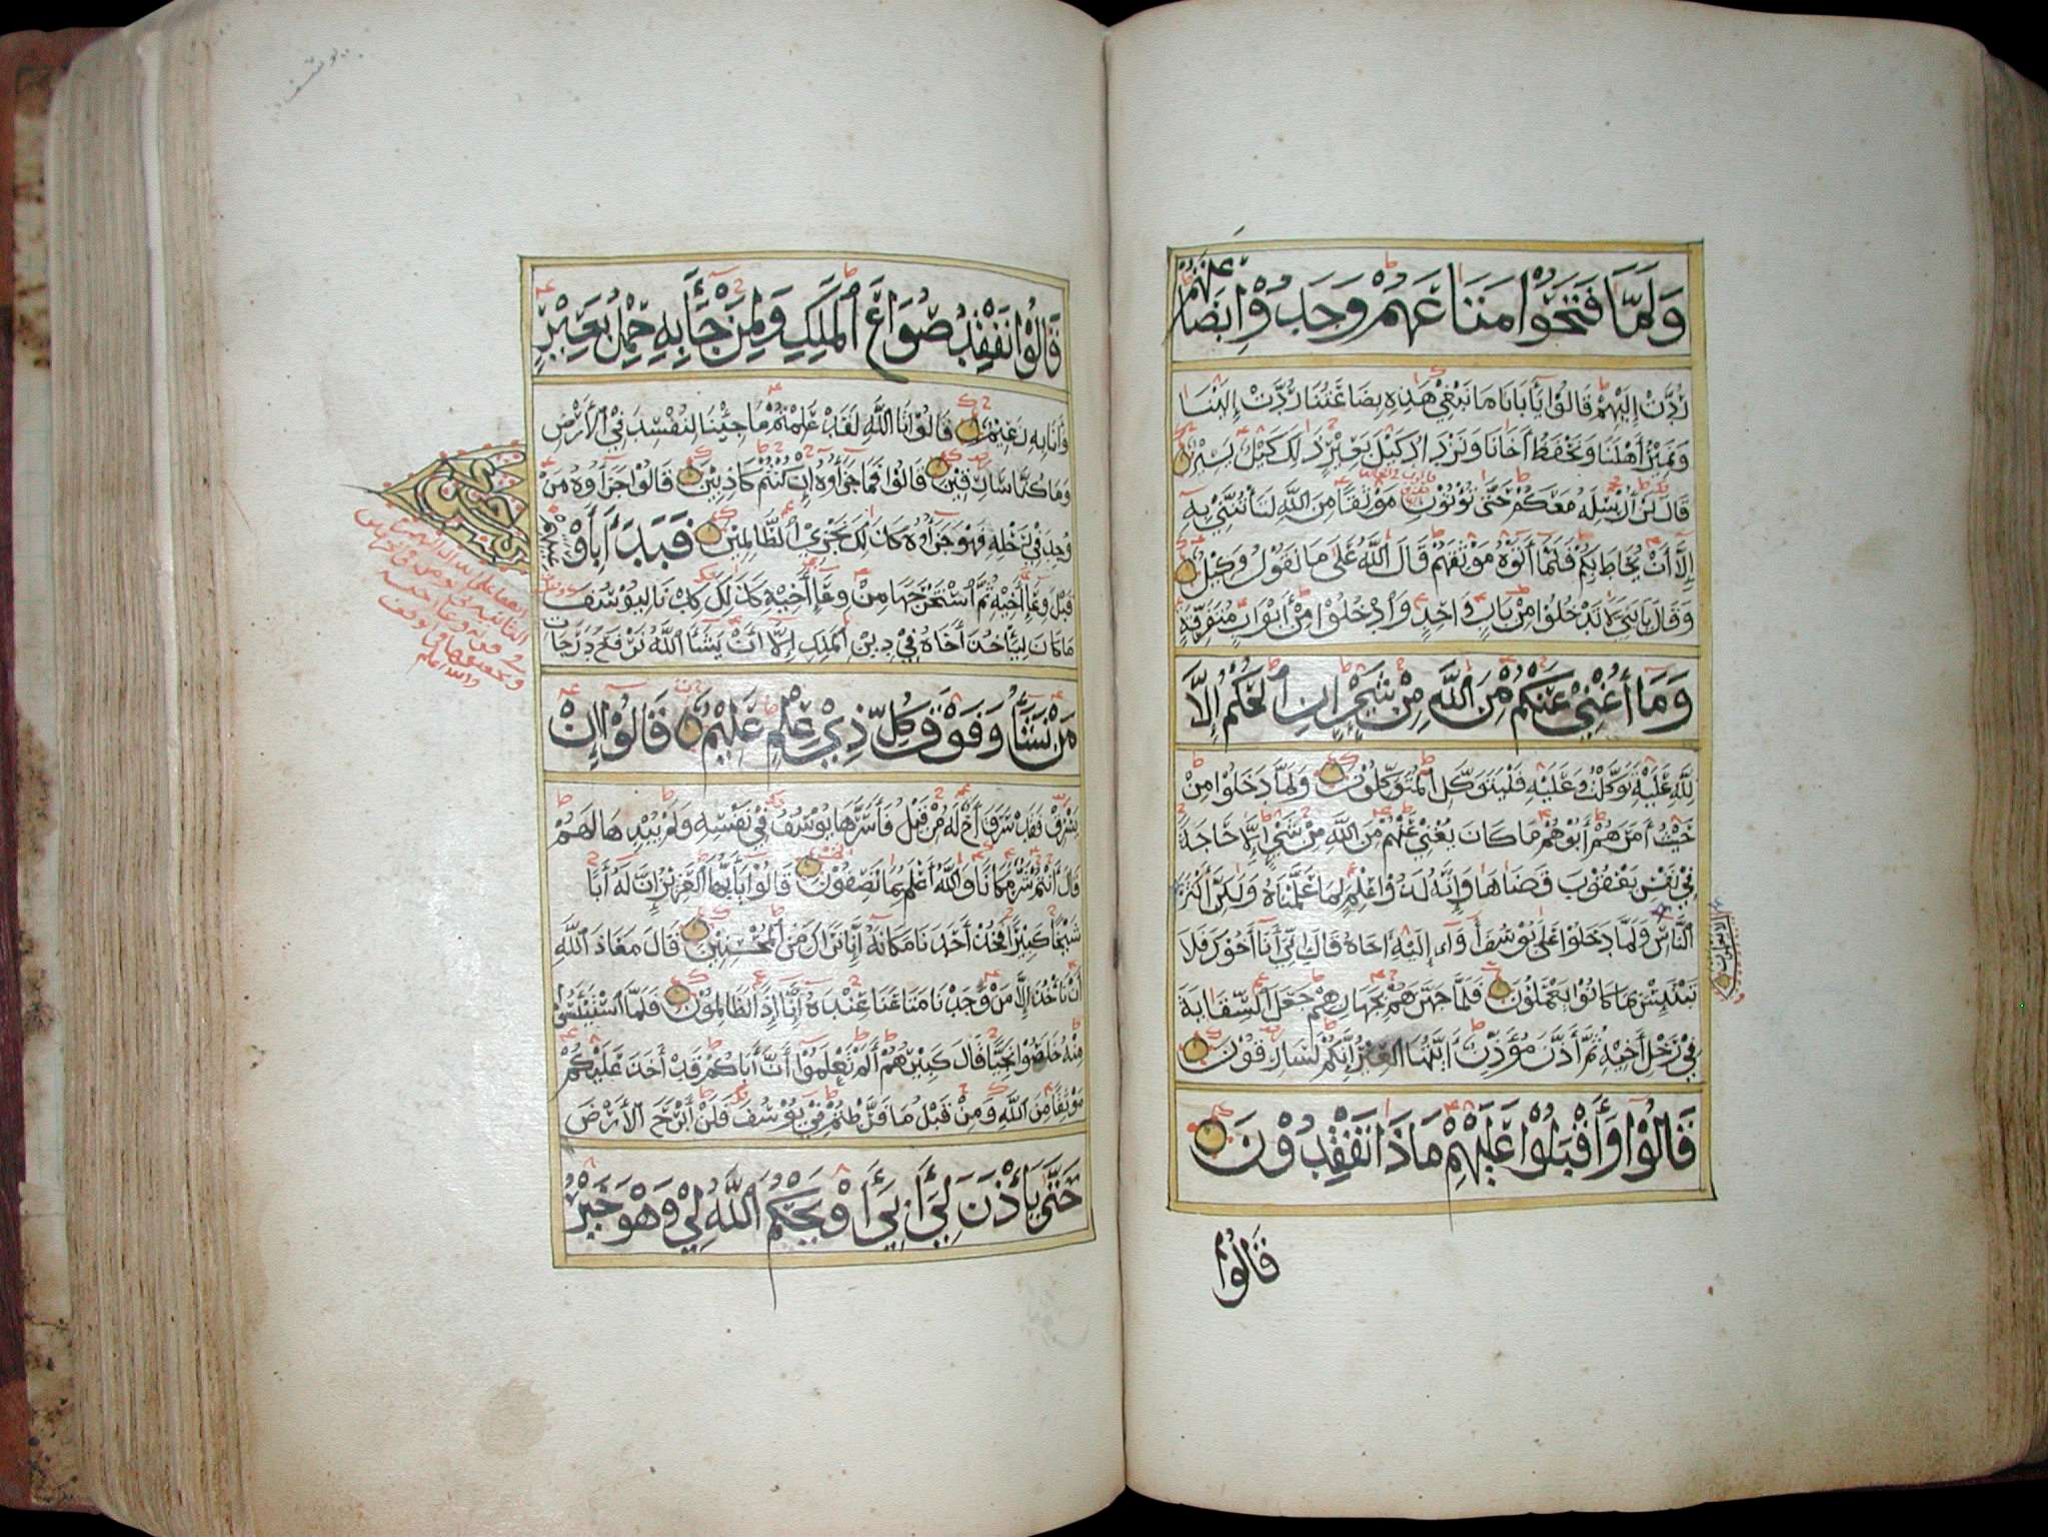 وَلَمَّا فَتَحُوْا مَتَاعَهُمْ وَجَدُوْا بِضَاعَتَهُمْ
رُدَّتْ إِلَيْهِمْ قَالُوْا يَأَبَانَا مَا نَبْغِيْ هَذِهِ بِضَاعَتُنَا رُدَّتْ إِلَيْنَا
وَنَمِيْرُ أَهْلَنَا وَنَحْفَظُ أَخَانَا وَنَزْدَادُ كَيْلَ بَعِيْرٍ ذَلِكَ كَيْلٌ يَسِيْرٌ
قَالَ لَنْ أُرْسِلَهُ مَعَكُمْ حَتَّى تُؤْتُوْنِ مَوْثِقًا مِنَ اللَّهِ لَتَأْتُنَّنِيْ بِهِ
إِلَّا أَنْ يُحَاطَ بِكُمْ فَلَمَّا أَتَوْهُ مَوْثِقَهُمْ قَالَ اللَّهُ عَلَى مَا نَقُوْلُ وَكِيْلٌ
وَقَالَ يَابَنِيَّ لَا تَدْخُلُوْا مِنْ بَابٍ وَاحِدٍ وَادْخُلُوْا مِنْ أَبْوَابٍ مُتَفَرِّقَةٍ
وَمَا أُغْنِيْ عَنْكُمْ مِنَ اللَّهِ مِنْ شَيْءٍ إِنِ الْحُكْمُ إِلَّا
لِلَّهِ عَلَيْهِ تَوَكَّلْتُ وَعَلَيْهِ فَلْيَتَوَكَّلِ الْمُتَوَكِّلُوْنَ وَلَمَّا دَخَلُوْا مِنْ
حَيْثُ أَمَرَهُمْ أَبُوْهُمْ مَا كَانَ يُغْنِيْ عَنْهُمْ مِنَ اللَّهِ مِنْ شَيْءٍ إِلَّا حَاجَةً
فِيْ نَفْسِ يَعْقُوْبَ قَضَاهَا وَإِنَّهُ لَذُوْ عِلْمٍ لِمَا عَلَّمْنَاهُ وَلَكِنَّ أَكْثَرَ
النَّاسِ وَلَمَّا دَخَلُوْا عَلَى يُوْسُفَ أَوَاى إِلَيْهِ أَخَاهُ قَالَ إِنِّيْ أَنَا أَخُوْكَ فَلَا
تَبْتَئِسْ بِمَا كَانُوْا يَعْمَلُوْنَ فَلَمَّا جَهَّزَهُمْ بِجَهَازِهِمْ جَعَلَ السِّقَايَةَ
فِيْ رَحْلِ أَخِيْهِ ثُمَّ أَذَّنَ مُؤَذِّنٌ أَيَّتُهَا الْعِيْرُ إِنَّكُمْ لَسَارِقُوْنَ
قَالُوْا وَأَقْبَلُوْا عَلَيْهِمْ مَاذَا تَفْقِدُوْنَ
قَالُوْا
قَالُوْا نَفْقِدُ صُوَاعَ الْمَلِكِ وَلِمَنْ جَاءَ بِهِ حِمْلُ بَعِيْرٍ
وَأَنَا بِهِ زَعِيْمٌ قَالُوْا تَاللَّهِ لَقَدْ عَلِمْتُمْ مَا جِئْنَا لِنُفْسِدَ فِي الْأَرْضِ
وَمَا كُنَّا سَارِقِيْنَ قَالُوْا فَمَا جَزَاؤُهُ إِنْ كُنْتُمْ كَاذِبِيْنَ قَالُوْا جَزَاؤُهُ مَنْ
وُجِدَ فِيْ رَحْلِهِ فَهُوَ جَزَاؤُهُ كَذَلِكَ نَجْزِي الظَّالِمِيْنَ فَبَدَأَ بِأَوْعِيَتِهِمْ
قَبْلَ وِعَاءِ أَخِيْهِ ثُمَّ اسْتَخْرَجَهَا مِنْ وِعَاءِ أَخِيْهِ كَذَلِكَ كِدْنَا لِيُوْسُفَ
مَا كَانَ لِيَأْخُذَ أَخَاهُ فِيْ دِيْنِ الْمَلِكِ إِلَّا أَنْ يَشَاءَ اللَّهُ نَرْفَعُ دَرَجَاتٍ
مَنْ نَشَاءُ وَفَوْقَ كُلِّ ذِيْ عِلْمٍ عَلِيْمٌ قَالُوْا إِنْ
يَسْرِقْ فَقَدْ سَرَقَ أَخٌ لَهُ مِنْ قَبْلُ فَأَسَرَّهَا يُوْسُفُ فِيْ نَفْسِهِ وَلَمْ يُبْدِهَا لَهُمْ
قَالَ أَنْتُمْ شَرٌّ مَكَانًا وَاللَّهُ أَعْلَمُ بِمَا تَصِفُوْنَ قَالُوْا يَأَيُّهَا الْعَزِيْزُ إِنَّ لَهُ أَبًا
شَيْخًا كَبِيْرًا فَخُذْ أَحَدَنَا مَكَانَهُ إِنَّا نَرَاكَ مِنَ الْمُحْسِنِيْنَ قَالَ مَعَاذَ اللَّهِ
أَنْ نَأْخُذَ إِلَّا مَنْ وَجَدْنَا مَتَاعَنَا عِنْدَهُ إِنَّا إِذًا لَظَالِمُوْنَ فَلَمَّا اسْتَيْئَسُوْا
مِنْهُ خَلَصُوْا نَجِيًّا قَالَ كَبِيْرُهُمْ أَلَمْ تَعْلَمُوْا أَنَّ أَبَاكُمْ قَدْ أَخَذَ عَلَيْكُمْ
مَوْثِقًا مِنَ اللَّهِ وَمِنْ قَبْلُ مَا فَرَّطْتُمْ فِيْ يُوْسُفَ فَلَنْ أَبْرَحَ الْأَرْضَ
حَتَّى يَأْذَنَ لِيْ أَبِيْ أَوْ يَحْكُمَ اللَّهُ لِيْ وَهُوَ خَيْرُ